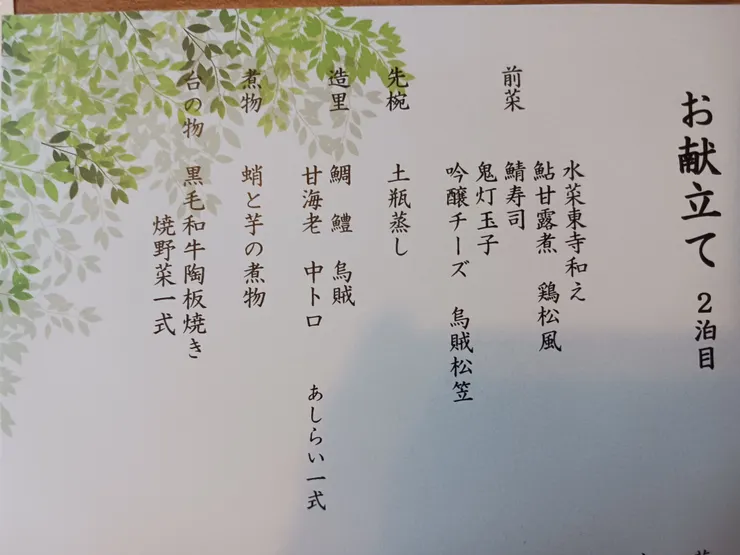 お献立て 2泊目
前菜
水菜東寺和え
鮎甘露煮 鶏松風
鯖寿司
鬼灯玉子
吟醸チーズ 烏賊松笠
先椀 土瓶蒸し
造里 鯛 鱧 烏賊
甘海老 中トロ あしらい一式
煮物 蛸と芋の煮物
台の物 黒毛和牛陶板焼き
焼野菜一式